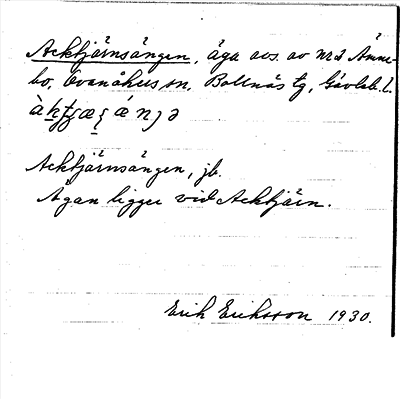 Acktjärnsängen, äga avs. av nr 2 Änne-
bo, Ovanåkers sn, Bollnäs tg, Gävleb. l.
Acktjärnsängen, jb.
Ägan ligger vid Acktjärn.
Erik Eriksson 1930.